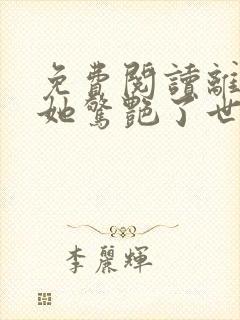 免費閱讀離
她驚艷了世
李麗輝